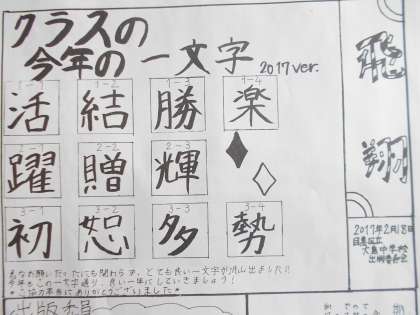 クラスの
今年の一文字
2017 ver.
1-1 1-2 1-3 1-4
活 結 勝 楽
2-1 2-2 2-3
躍 贈 輝
3-1 3-2 3-3 3-4
初 恕 多 勢
とても良い一文字が沢山出ました!!
今年もこの一文字通り、良い一年にしていきましょう!
ご協力本当にありがとうございました
飛翔
2017年2月8日
大島中学校
出版委員会
出版委員